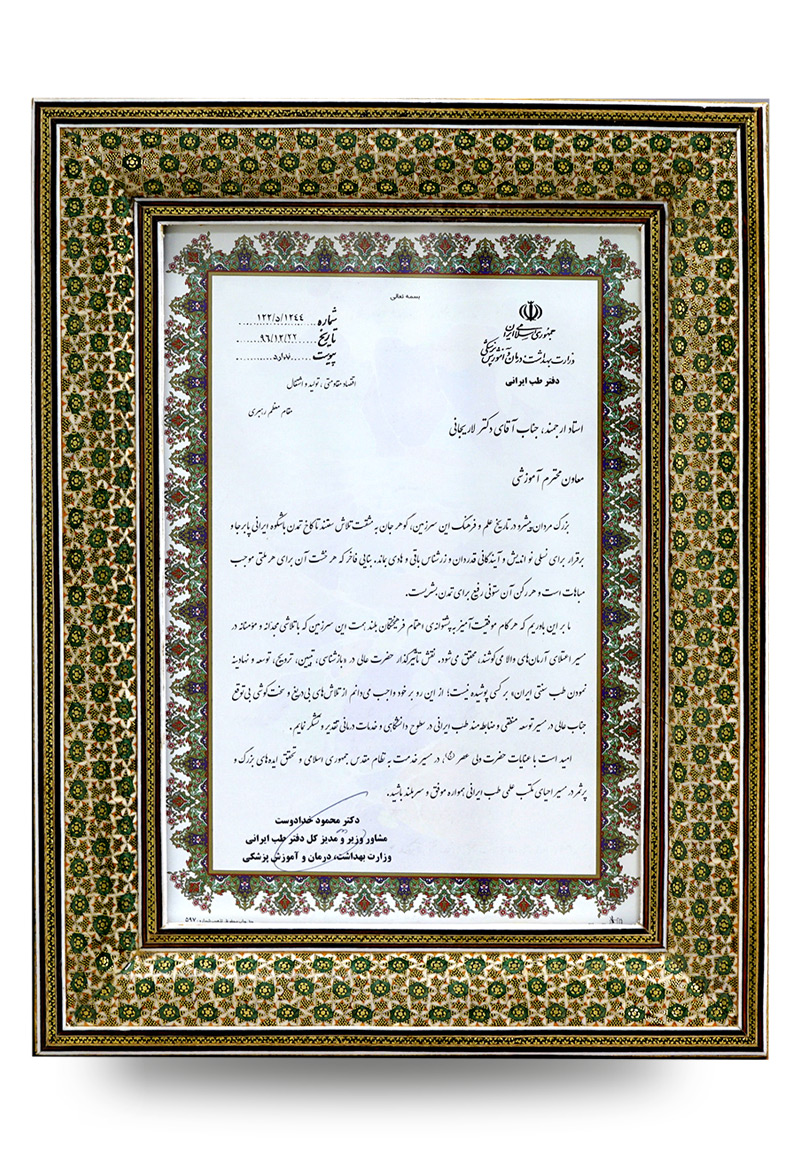 بسمه تعالی
جمهوری اسلامی ایران
وزارت بهداشت درمان و آموزش پزشکی
دفتر طب ایرانی
شماره ۱۲۲/۵/۱۲۴۴
تاریخ ۹۶/۱۲/۲۲
پیوست ندارد
اقتصاد مقاومتی، تولید و اشتغال
مقام معظم رهبری
استاد ارجمند، جناب آقای دکتر لاریجانی
معاون محترم آموزشی
بزرگ مردان پیشرو در تاریخ علم و فرهنگ این سرزمین، گوهر جان به مشقت تلاش سفتند تا کاخ تمدن باشکوه ایرانی پابرجا و
برقرار برای نسلی نو اندیش و آیندگانی قدردان و زرشناس باقی و هادی بماند. بنایی فاخر که هر خشت آن برای هر ملتی موجب
مباهات است و هر رکن آن ستونی رفیع برای تمدن بشریست.
ما بر این باوریم که هر گام موفقیت آمیز به پشتوانه ی اهتمام فرهیختگان بلند همت این سرزمین که با تلاشی مجدانه و مؤمنانه در
مسیر اعتلای آرمان‌های والا می‌کوشند، محقق می‌شود. نقش تأثیرگذار حضرت عالی در «بازشناسی، تبیین، ترویج، توسعه و نهادینه
نمودن طب سنتی ایران» بر کسی پوشیده نیست؛ از این رو بر خود واجب می‌دانم از تلاش‌های بی‌دریغ و سخت‌کوشی بی‌توقع
جناب عالی در مسیر توسعه منطقی و ضابطه‌مند طب ایرانی در سطوح دانشگاهی و خدمات درمانی تقدیر و تشکر نمایم.
امید است با عنایات حضرت ولی عصر (عج)، در مسیر خدمت به نظام مقدس جمهوری اسلامی و تحقق ایده‌های بزرگ و
پرثمر در مسیر احیای مکتب علمی طب ایرانی همواره موفق و سربلند باشید.
دکتر محمود خدادوست
مشاور وزیر و مدیر کل دفتر طب ایرانی
وزارت بهداشت، درمان و آموزش پزشکی
۵۹۷